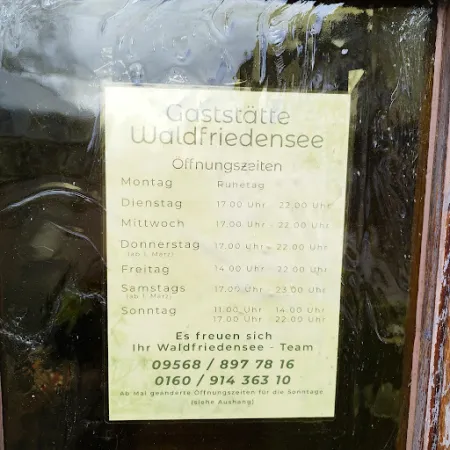 Gaststätte
Waldfriedensee
Öffnungszeiten
Montag Ruhetag
Dienstag 17.00 Uhr - 22.00 Uhr
Mittwoch 17.00 Uhr - 22.00 Uhr
Donnerstag 17.00 Uhr - 22.00 Uhr
(ab 1. März)
Freitag 14.00 Uhr - 22.00 Uhr
Samstags 17.00 Uhr - 23.00 Uhr
(ab 1. März)
Sonntag 11.00 Uhr - 14.00 Uhr
17.00 Uhr - 22.00 Uhr
Es freuen sich
Ihr Waldfriedensee - Team
09568 / 897 78 16
0160 / 914 363 10
Ab Mai geänderte Öffnungszeiten für die Sonntage
(siehe Aushang)